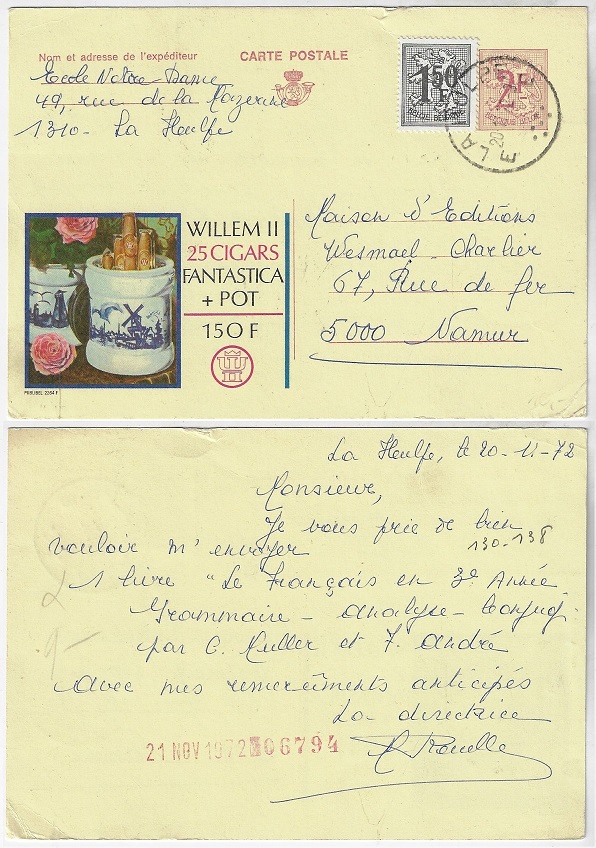 Nom et adresse de l'expéditeur
CARTE POSTALE
Ecole Notre Dame
49, rue de la Mazerine
1310 - La Hulpe
1 50 F
2 F
WILLEM II
25 CIGARS
FANTASTICA
+ POT
150 F
W II
PUBLIBEL 2264 F
Maison d'Editions
Wesmael-Charlier
67, Rue de fer
5000 Namur
La Hulpe, le 20-11-72
Monsieur,
Je vous prie de bien
vouloir m'envoyer
130-138
1 livre "Le Français en 3e Année
Grammaire - analyse - Conjug.
par C. Muller et F. André
Avec mes remerciments anticipés
La directrice
21 NOV 1972 06794